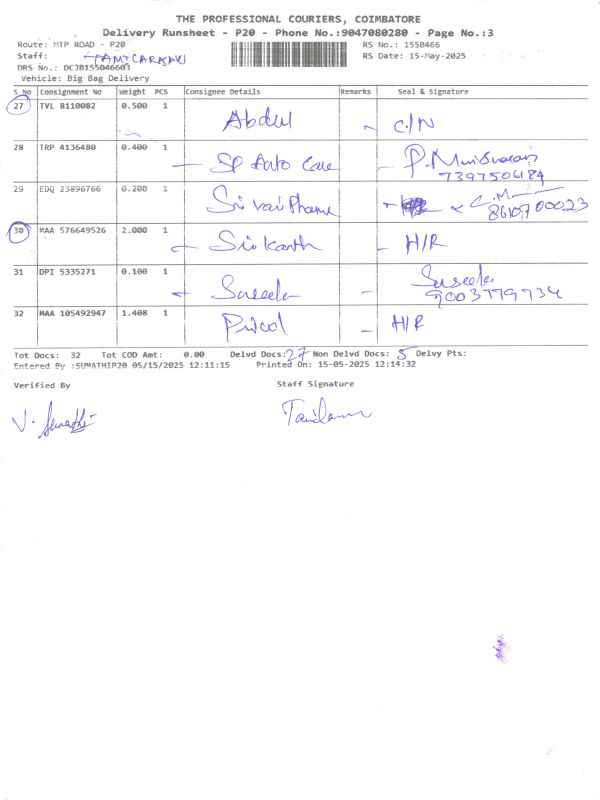 THE PROFESSIONAL COURIERS, COIMBATORE
Delivery Runsheet - P20 - Phone No.:9047080280 - Page No.:3
Route: MTP ROAD - P20 RS No.: 1550466
Staff: RS Date: 15-May-2025
DRS No.: DCJB155046603
Vehicle: Big Bag Delivery
S No Consignment No Weight PCS Consignee Details Remarks Seal & Signature
27 TVL 8110082 0.500 1 Abdul C/N
28 TRP 4136480 0.400 1 SP Auto Care
7397506184
29 EDQ 23896766 0.200 1
8610700023
30 MAA 576649526 2.000 1 Srikanth H/R
31 DPI 5335271 0.100 1 Suseela Suseela
9003779734
32 MAA 105492947 1.408 1 Pricol H/R
Tot Docs: 32 Tot COD Amt: 0.00 Delvd Docs: 27 Non Delvd Docs: 5 Delvy Pts:
Entered By :SUMATHIP20 05/15/2025 12:11:15 Printed On: 15-05-2025 12:14:32
Verified By Staff Signature